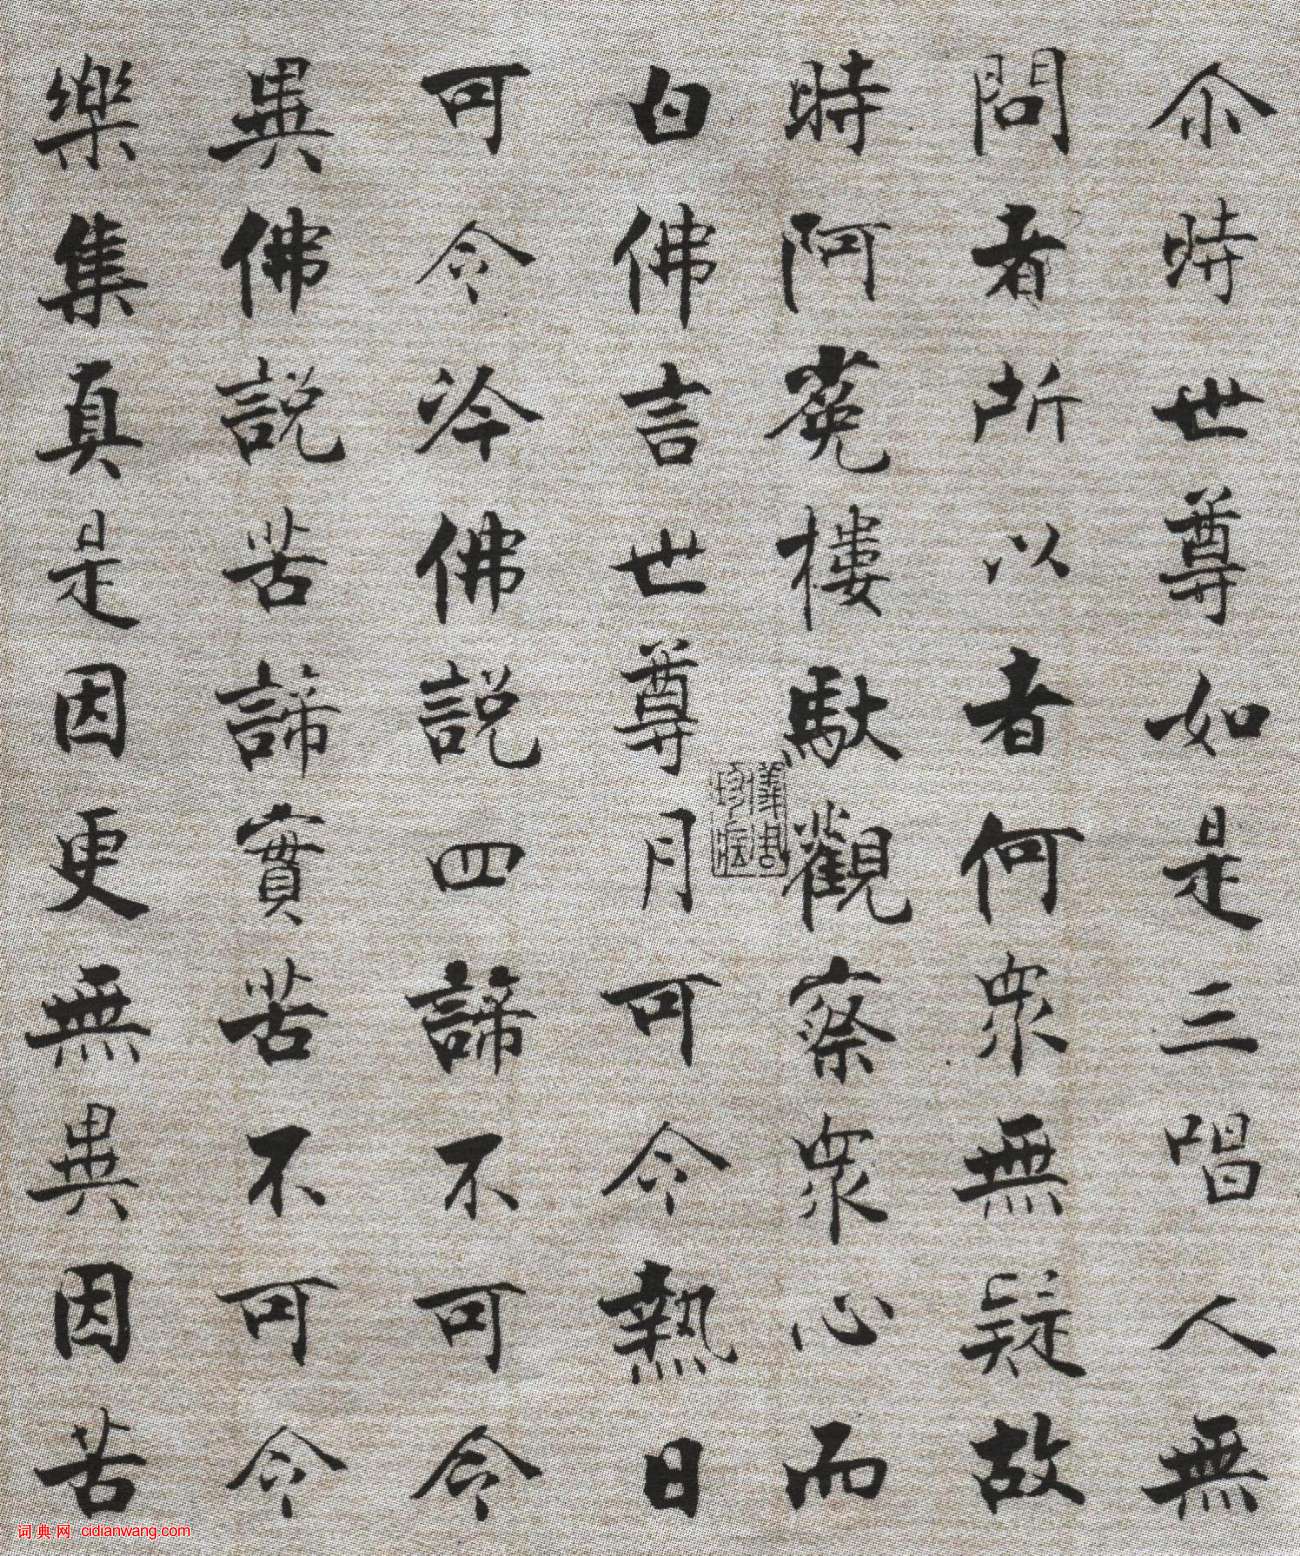 尒時世尊如是三唱人無
問者所以者何眾無疑故
時阿㝹樓馱觀察眾心而
白佛言世尊月可令熱日
可令冷佛說四諦不可令
異佛說苦諦實苦不可令
樂集真是因更無異因苦
词典网 cidianwang.com